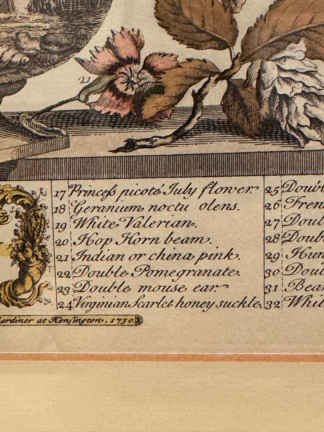 17 Princess picote July flower
18 Geranium noctu olens.
19 White Valerian.
20 Hop Horn beam.
21 Indian or china pink.
22 Double Pomegranate
23 Double mouse ear
24 Virginian Scarlet honey suckle
25 Doub
26 Fren
27 Doub
28 Doub
29 Hun
30 Doub
31 Bea
32 Whit
Gardiner at Kensington. 1730.